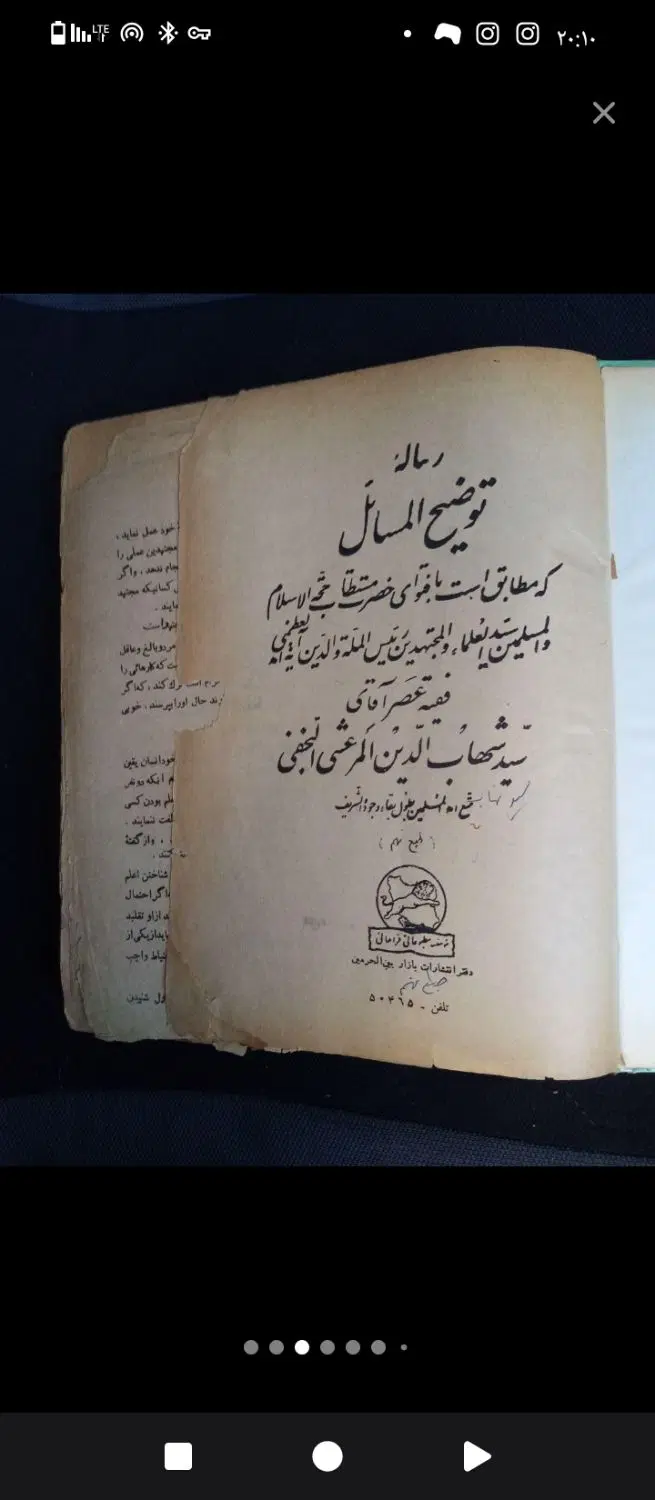 LTE
۲۰:۱۰
رسالهٔ
توضیح المسائل
که مطابق است با فتوای حضرت مستطاب حجة الاسلام
والمسلمین سید العلماء والمجتهدین رئیس الملة والدین آیة الله العظمی
فقیه عصر آقای
سید شهاب الدین المرعشی النجفی
متع الله المسلمین بطول بقاء وجوده الشریف
( طبع نهم )
دفتر انتشارات بازار بین‌الحرمین
تلفن - ۵۰۴۶۵
خود عمل نماید ،
مجتهدین عملی را
نجام ندهد ، واگر
کسانیکه مجتهد
مرد و بالغ و عاقل
ت که کارهائی را
ترك کند ، که اگر
ند حال اورا بپرسند ، خوبی
خود انسان یقین
م آنکه دو نفر
لم بودن کسی
لفت ننمایند .
، و از گفتهٔ
کنند .
شناختن اعلم
اگر احتمال
د از او تقلید
باید از یکی از
تیاط واجب
ول شنیدن